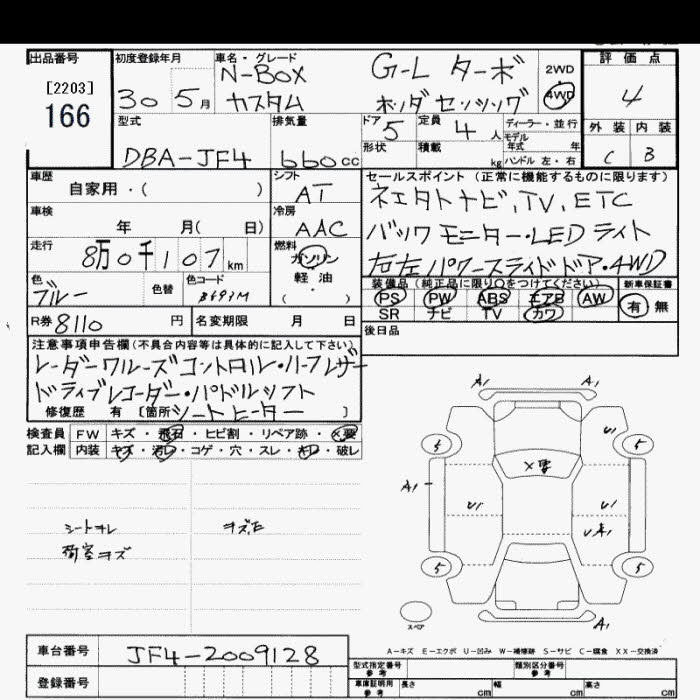 出品番号
[2203]
166
初度登録年月
30 5月
車名・グレード
N-BOX G-L ターボ
カスタム ホンダセンシング
2WD
4WD
評価点
4
外装 内装
C B
型式
DBA-JF4
排気量
660cc
ドア 5
定員 4人
形状 積載 kg
ディーラー・並行
モデル
年式 年
ハンドル 左・右
車歴
自家用・( )
シフト
AT
車検
年 月( 日)
冷房
AAC
走行
8万0千107km
燃料
ガソリン
軽油
( )
色
ブルー
色替
色コード
B693M
セールスポイント(正常に機能するものに限ります)
ネエタトナビ,TV,ETC
バックモニター・LEDライト
右左パワースライドドア・4WD
装備品(純正品に限り○をつけてください)
PS PW ABS エアB AW
SR ナビ TV カワ
新車保証書
有 無
R券 8110 円
名変期限 月 日
後日品
注意事項申告欄(不具合内容等は具体的に記入して下さい)
レーダークルーズコントロール・ハーフレザー
ドライブレコーダー・パドルシフト
修復歴 有 [箇所シートヒーター ]
検査員 FW キズ・飛石・ヒビ割・リペア跡・×要
記入欄 内装 キズ・汚レ・コゲ・穴・スレ・キレ・破レ
シートヨレ
荷室キズ
A1 A1
U1
5 5
×要
A1
U1 U1
U A1
5 5
スペア
A1
車台番号 JF4-2009128
登録番号
A-キズ E-エクボ U-凹み W-補修跡 S-サビ C-腐食 XX-交換済
型式指定番号
参考
類別区分番号
参考
車庫証明用
参考
長さ cm 幅 cm 高さ cm